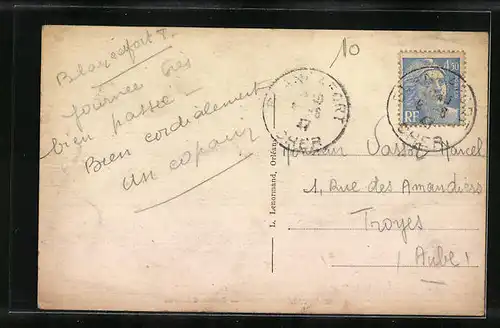 Blancafort 7.
journée très
bien passée -
Bien cordialement
un copain
10
4f50
RF
BLANCAFORT
CHER
CHER
L. Lenormand, Orléans
Monsieur Vassot Marcel
1, Rue des Amandiers
Troyes
(Aube)